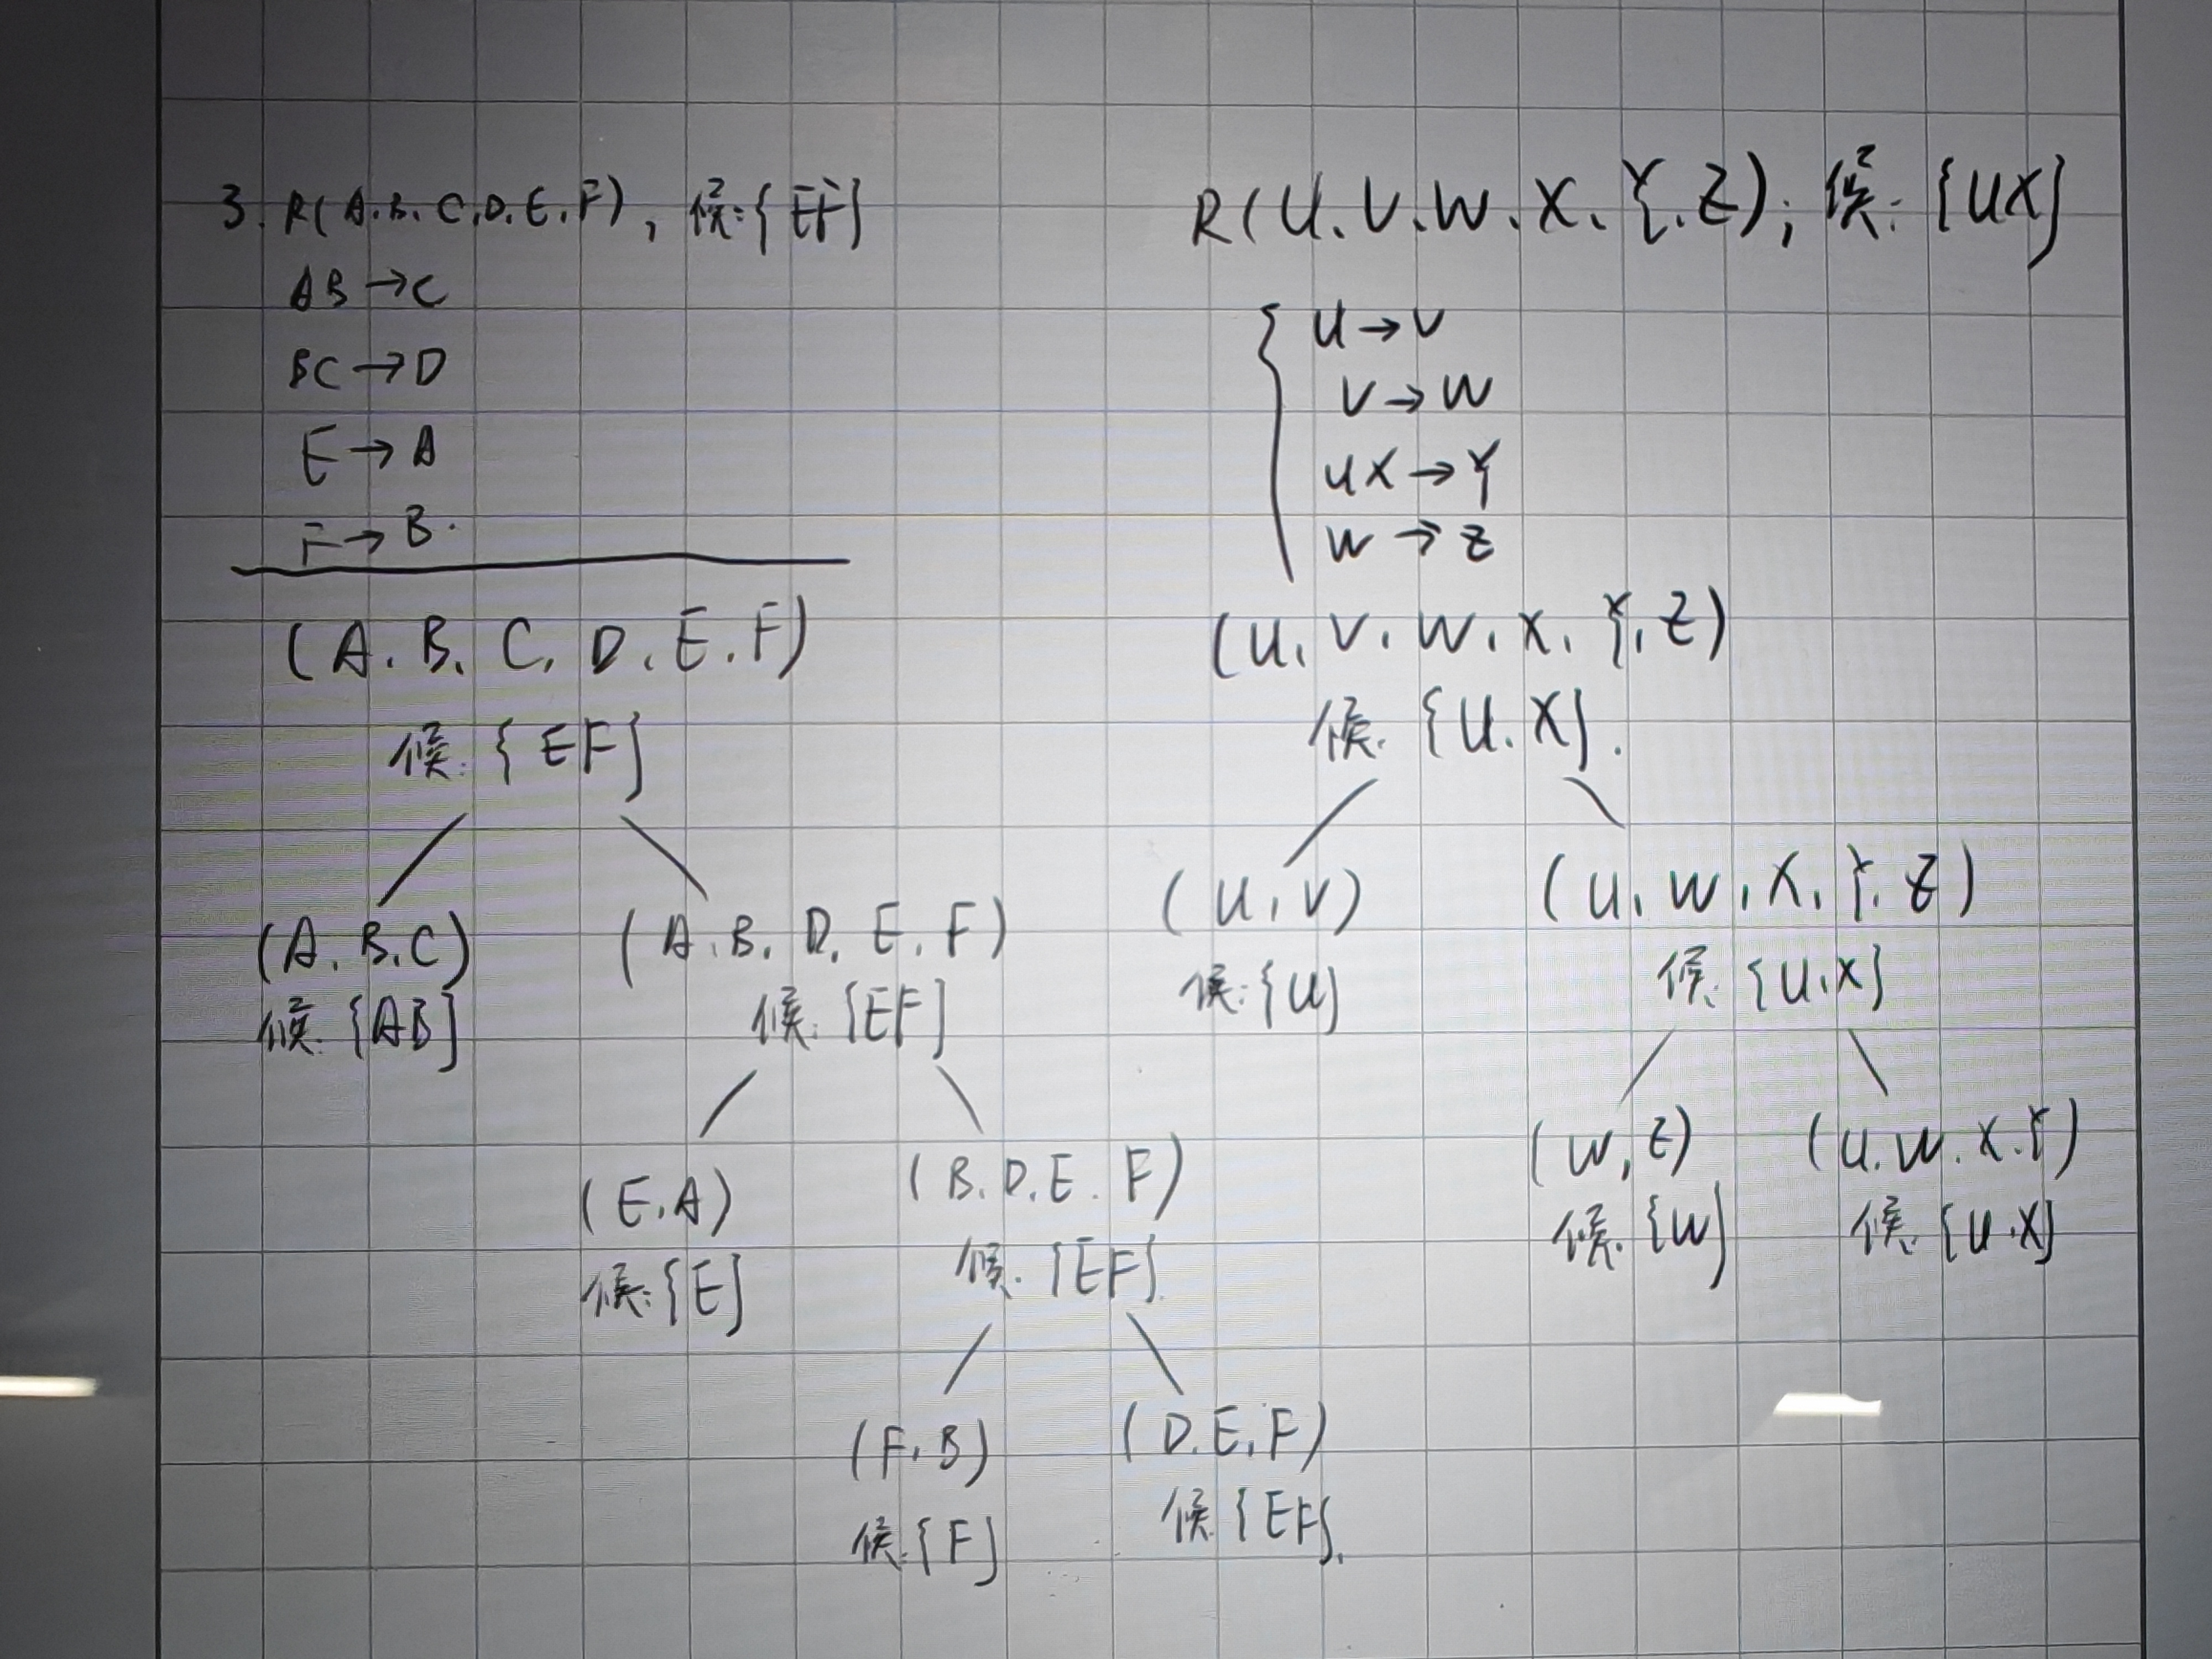 3. R(A.B.C.D.E.F), 候:{EF}
AB→C
BC→D
E→A
F→B.
(A.B.C.D.E.F)
候:{EF}
(A.B.C)
候:{AB}
(A.B.D.E.F)
候:{EF}
(E.A)
候:{E}
(B.D.E.F)
候:{EF}
(F.B)
候:{F}
(D.E.F)
候{EF}.
R(U.V.W.X.Y.Z); 候:{UX}
U→V
V→W
UX→Y
W→Z
(U.V.W.X.Y.Z)
候:{U.X}.
(U,V)
候:{U}
(U.W.X.Y.Z)
候:{U.X}
(W,Z)
候:{W}
(U.W.X.Y)
候:{U.X}